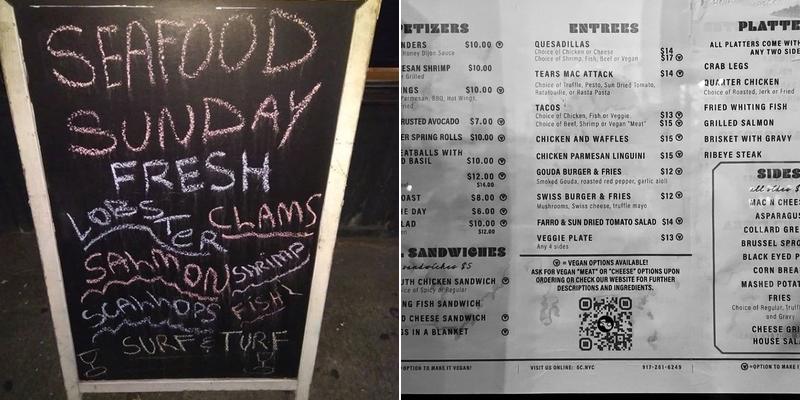 SEAFOOD
SUNDAY
FRESH
LOBSTER CLAMS
SALMON SHRIMP
SCALLOPS FISH
SURF & TURF
ETIZERS
NDERS $10.00
Honey Dijon Sauce
ESAN SHRIMP $10.00
r Grilled
INGS $10.00
Parmesan, BBQ, Hot Wings,
ied
RUSTED AVOCADO $7.00
ER SPRING ROLLS $10.00
EATBALLS WITH
D BASIL $10.00
$12.00
$14.00
OAST $8.00
HE DAY $6.00
LAD $10.00
$12.00
L SANDWICHES
sandwiches $5
UTH CHICKEN SANDWICH
ce of Spicy or Regular
NG FISH SANDWICH
D CHEESE SANDWICH
GS IN A BLANKET
=OPTION TO MAKE IT VEGAN!
ENTREES
QUESADILLAS
Choice of Chicken or Cheese $14
Choice of Shrimp, Fish, Beef or Vegan $17 V
TEARS MAC ATTACK $14 V
Choice of Truffle, Pesto, Sun Dried Tomato,
Ratatouille, or Rasta Pasta
TACOS
Choice of Chicken, Fish or Veggie $13 V
Choice of Beef, Shrimp or Vegan "Meat" $15 V
CHICKEN AND WAFFLES $15 V
CHICKEN PARMESAN LINGUINI $15 V
GOUDA BURGER & FRIES $12 V
Smoked Gouda, roasted red pepper, garlic aioli
SWISS BURGER & FRIES $12 V
Mushrooms, Swiss cheese, truffle mayo
FARRO & SUN DRIED TOMATO SALAD $14 V
VEGGIE PLATE $13 V
Any 4 sides
V = VEGAN OPTIONS AVAILABLE!
ASK FOR VEGAN "MEAT" OR "CHEESE" OPTIONS UPON
ORDERING OR CHECK OUR WEBSITE FOR FURTHER
DESCRIPTIONS AND INGREDIENTS.
VISIT US ONLINE: SC.NYC 917-261-6249
PLATTE
ALL PLATTERS COME WITH
ANY TWO SIDE
CRAB LEGS
QUARTER CHICKEN
Choice of Roasted, Jerk or Fried
FRIED WHITING FISH
GRILLED SALMON
BRISKET WITH GRAVY
RIBEYE STEAK
SIDES
all sides $
MAC N CHEES
ASPARAGUS
COLLARD GRE
BRUSSEL SPRO
BLACK EYED P
CORN BREA
MASHED POTAT
FRIES
Choice of Regular, Truffl
and Gravy
CHEESE GRI
HOUSE SALA
V =OPTION TO MAKE I